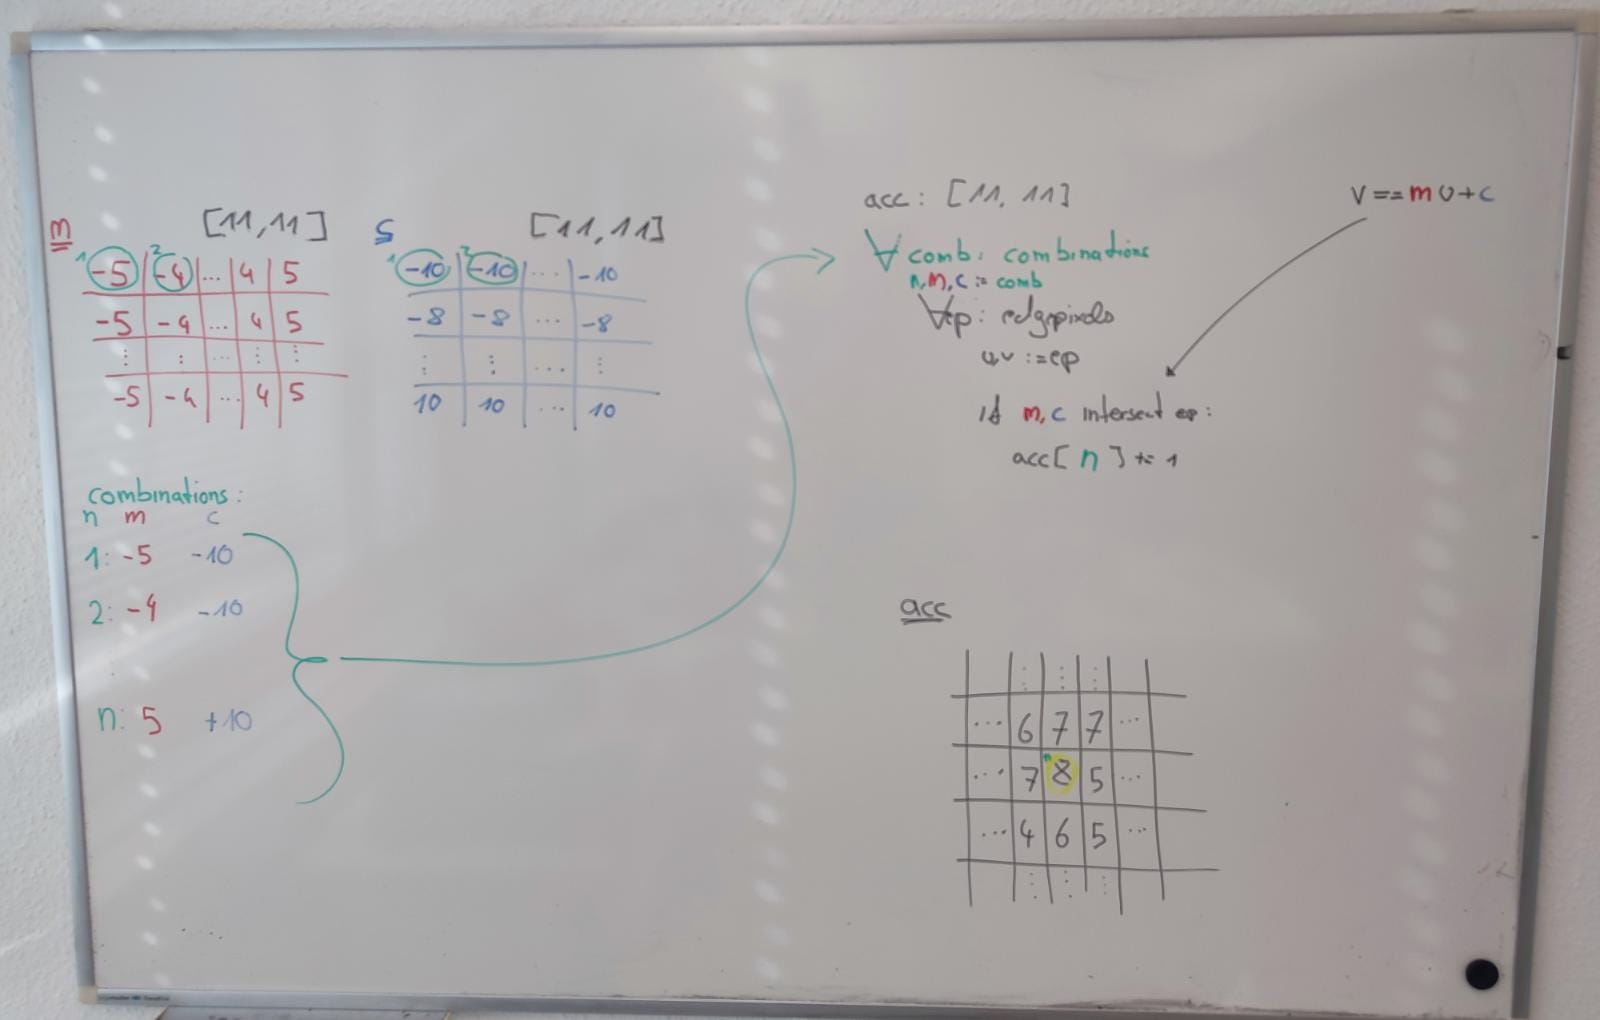 m [11,11]
1 -5 2 -4 ... 4 5
-5 -4 ... 4 5
⋮ ⋮ ... ⋮ ⋮
-5 -4 ... 4 5
c [11,11]
1 -10 2 -10 ... -10
-8 -8 ... -8
⋮ ⋮ ... ⋮
10 10 ... 10
combinations:
n m c
1: -5 -10
2: -4 -10
n: 5 +10
acc: [11, 11]
∀ comb: combinations
n, m, c := comb
∀ep: edgepixels
u,v := ep
if m, c intersect ep:
acc[ n ] += 1
v == m u + c
acc
⋮ ⋮ ⋮
... 6 7 7 ...
... 7 n 8 5 ...
... 4 6 5 ...
⋮ ⋮ ⋮